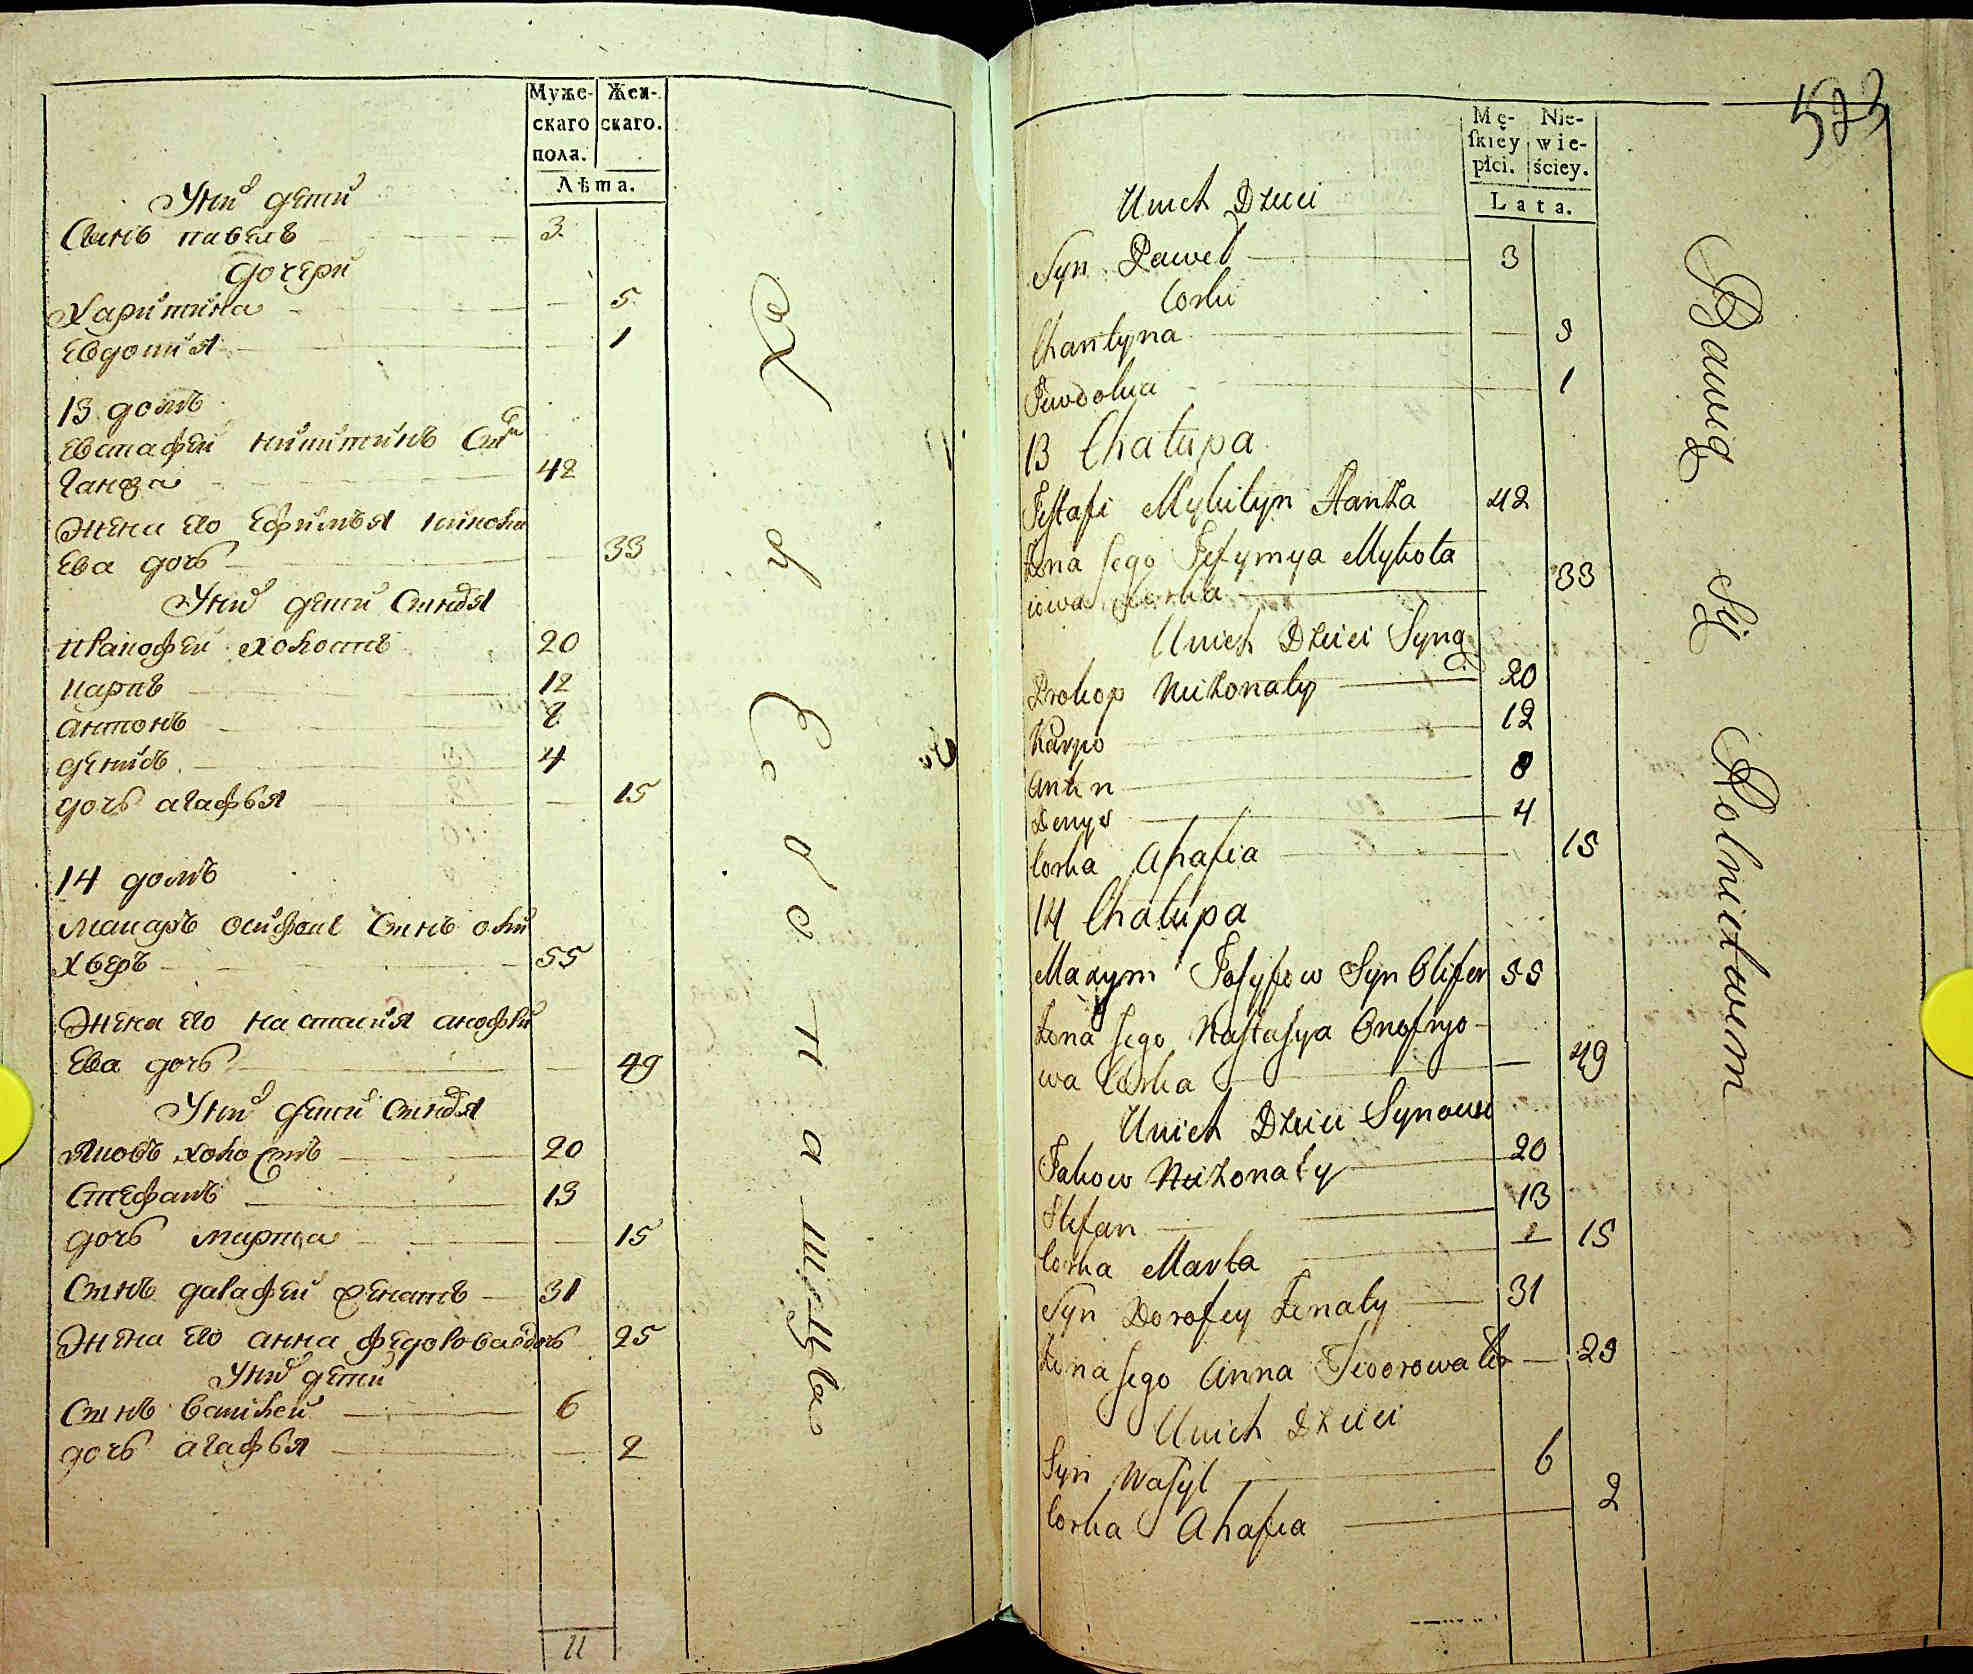 Муже-
скаго
пола.
Жен-
скаго.
Лѣта.
У них дети
Сынъ павелъ 3
дочери
Харитина 5
Евдокия 1
13 домъ
Евстафей никитинъ Сынъ
Ганжа 42
Жена его Ефимья николаева
дочь 33
У них дети Сыновья
Пракофей холостъ 20
карпъ 12
антонъ 8
денисъ 4
дочь агафья 15
14 домъ
осиповъ Сынъ оли
хверъ 55
Жена его настасия анофри
ева дочь 49
У них дети Сыновья
Яковъ холостъ 20
Стефанъ 13
дочь марта 15
Сынъ дарафей женатъ 31
Жена его анна федорова дочь 25
У них дети
Сынъ василей 6
дочь агафья 2
11
Хлебопашцы
523
Mę-
skiéy
płci.
Nie-
wie-
ściey.
Lata.
U nich Dzieci
Syn Paweł 3
Corki
Charytyna 5
Juwdokia 1
13 Chałupa
Jestafi Mykityn Hanża 42
Żona Jego Jefymya Mykoła
iowa Corka 33
U nich Dzieci Syny
Prokop Nieżonaty 20
Karpo 12
Anton 8
Denys 4
Corka Ahafia 15
14 Chałupa
Maxym Josyfow Syn Olifer 55
Żona Jego Nastasya Onofryo-
wa Corka 49
U nich Dzieci Synowie
Jakow Nieżonaty 20
Stefan 13
Corka Marta 15
Syn Dorofey Żenaty 31
Żona Jego Anna Teodorowa 25
U nich Dzieci
Syn Wasyl 6
Corka Ahafia 2
Bawią Się Rolnictwem